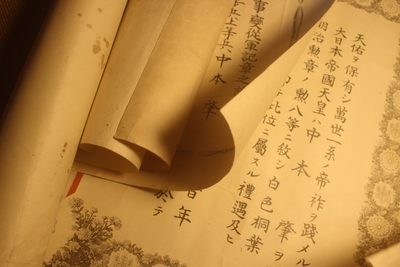 天佑ヲ保有シ萬世一系ノ帝祚ヲ踐メル
大日本帝國天皇ハ中本肇ヲ
明治勲章ノ勲八等ニ敍シ白色桐葉
此位ニ屬スル禮遇及ヒ
年
事變從軍記章之
上等兵中本肇